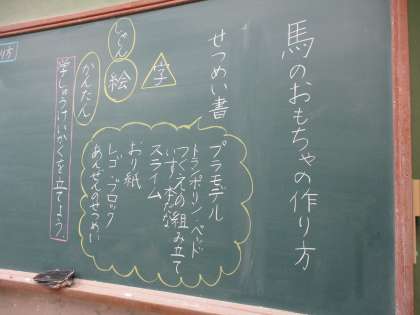 馬のおもちゃの作り方
せつめい書
プラモデル
トランポリン／ベッド
つくえの組み立て
いす、本だな
スライム
おり紙
レゴブロック
あんぜんのせつめい
字
しゃしん
絵
かんたん
学しゅうけいかくを立てよう
り方